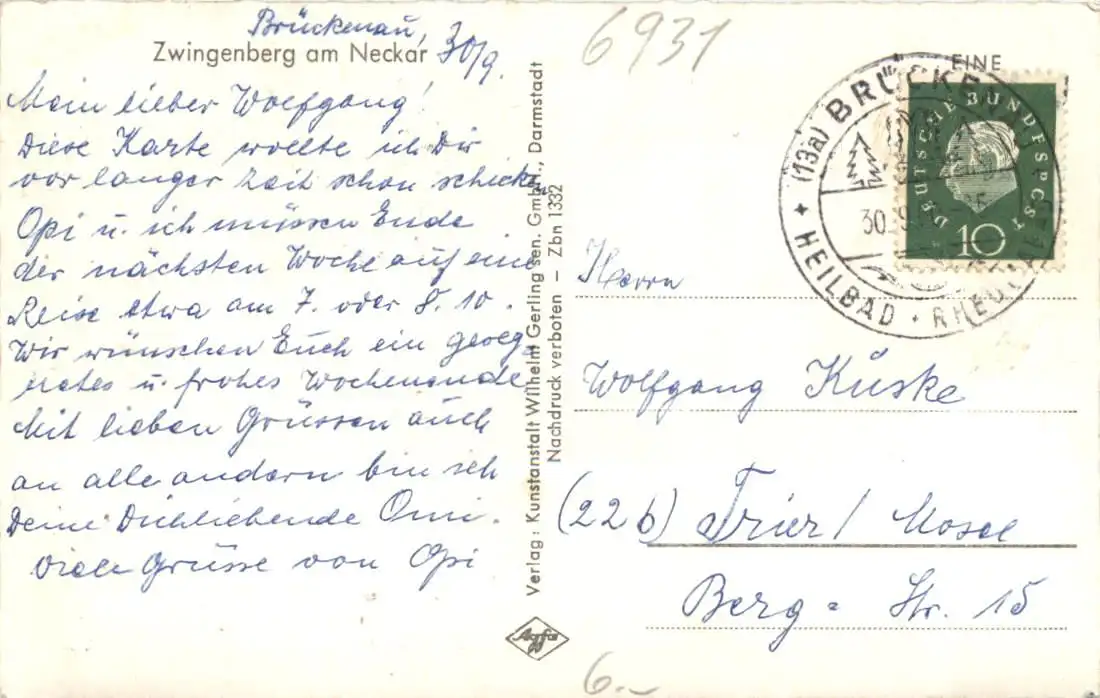 Brückenau, 30/9.
Zwingenberg am Neckar
Mein lieber Wolfgang!
Diese Karte wollte ich Dir
vor langer Zeit schon schicken
Opi u. ich müssen Ende
der nächsten Woche auf eine
Reise etwa am 7. oder 8. 10.
Wir wünschen Euch ein geseg
netes u. frohes Wochenende
Mit lieben Grüssen auch
an alle andern bin ich
Deine Dichliebende Omi.
Viele Grüsse von Opi
Verlag: Kunstanstalt Wilhelm Gerling sen. GmbH, Darmstadt
Nachdruck verboten – Zbn 1332
Agfa
6931
EINE
(13a) BRÜCKENAU
HEILBAD
30.9.
DEUTSCHE BUNDESPOST
10
Herrn
Wolfgang Kuske
(22b) Trier/Mosel
Berg-Str. 15
6.-